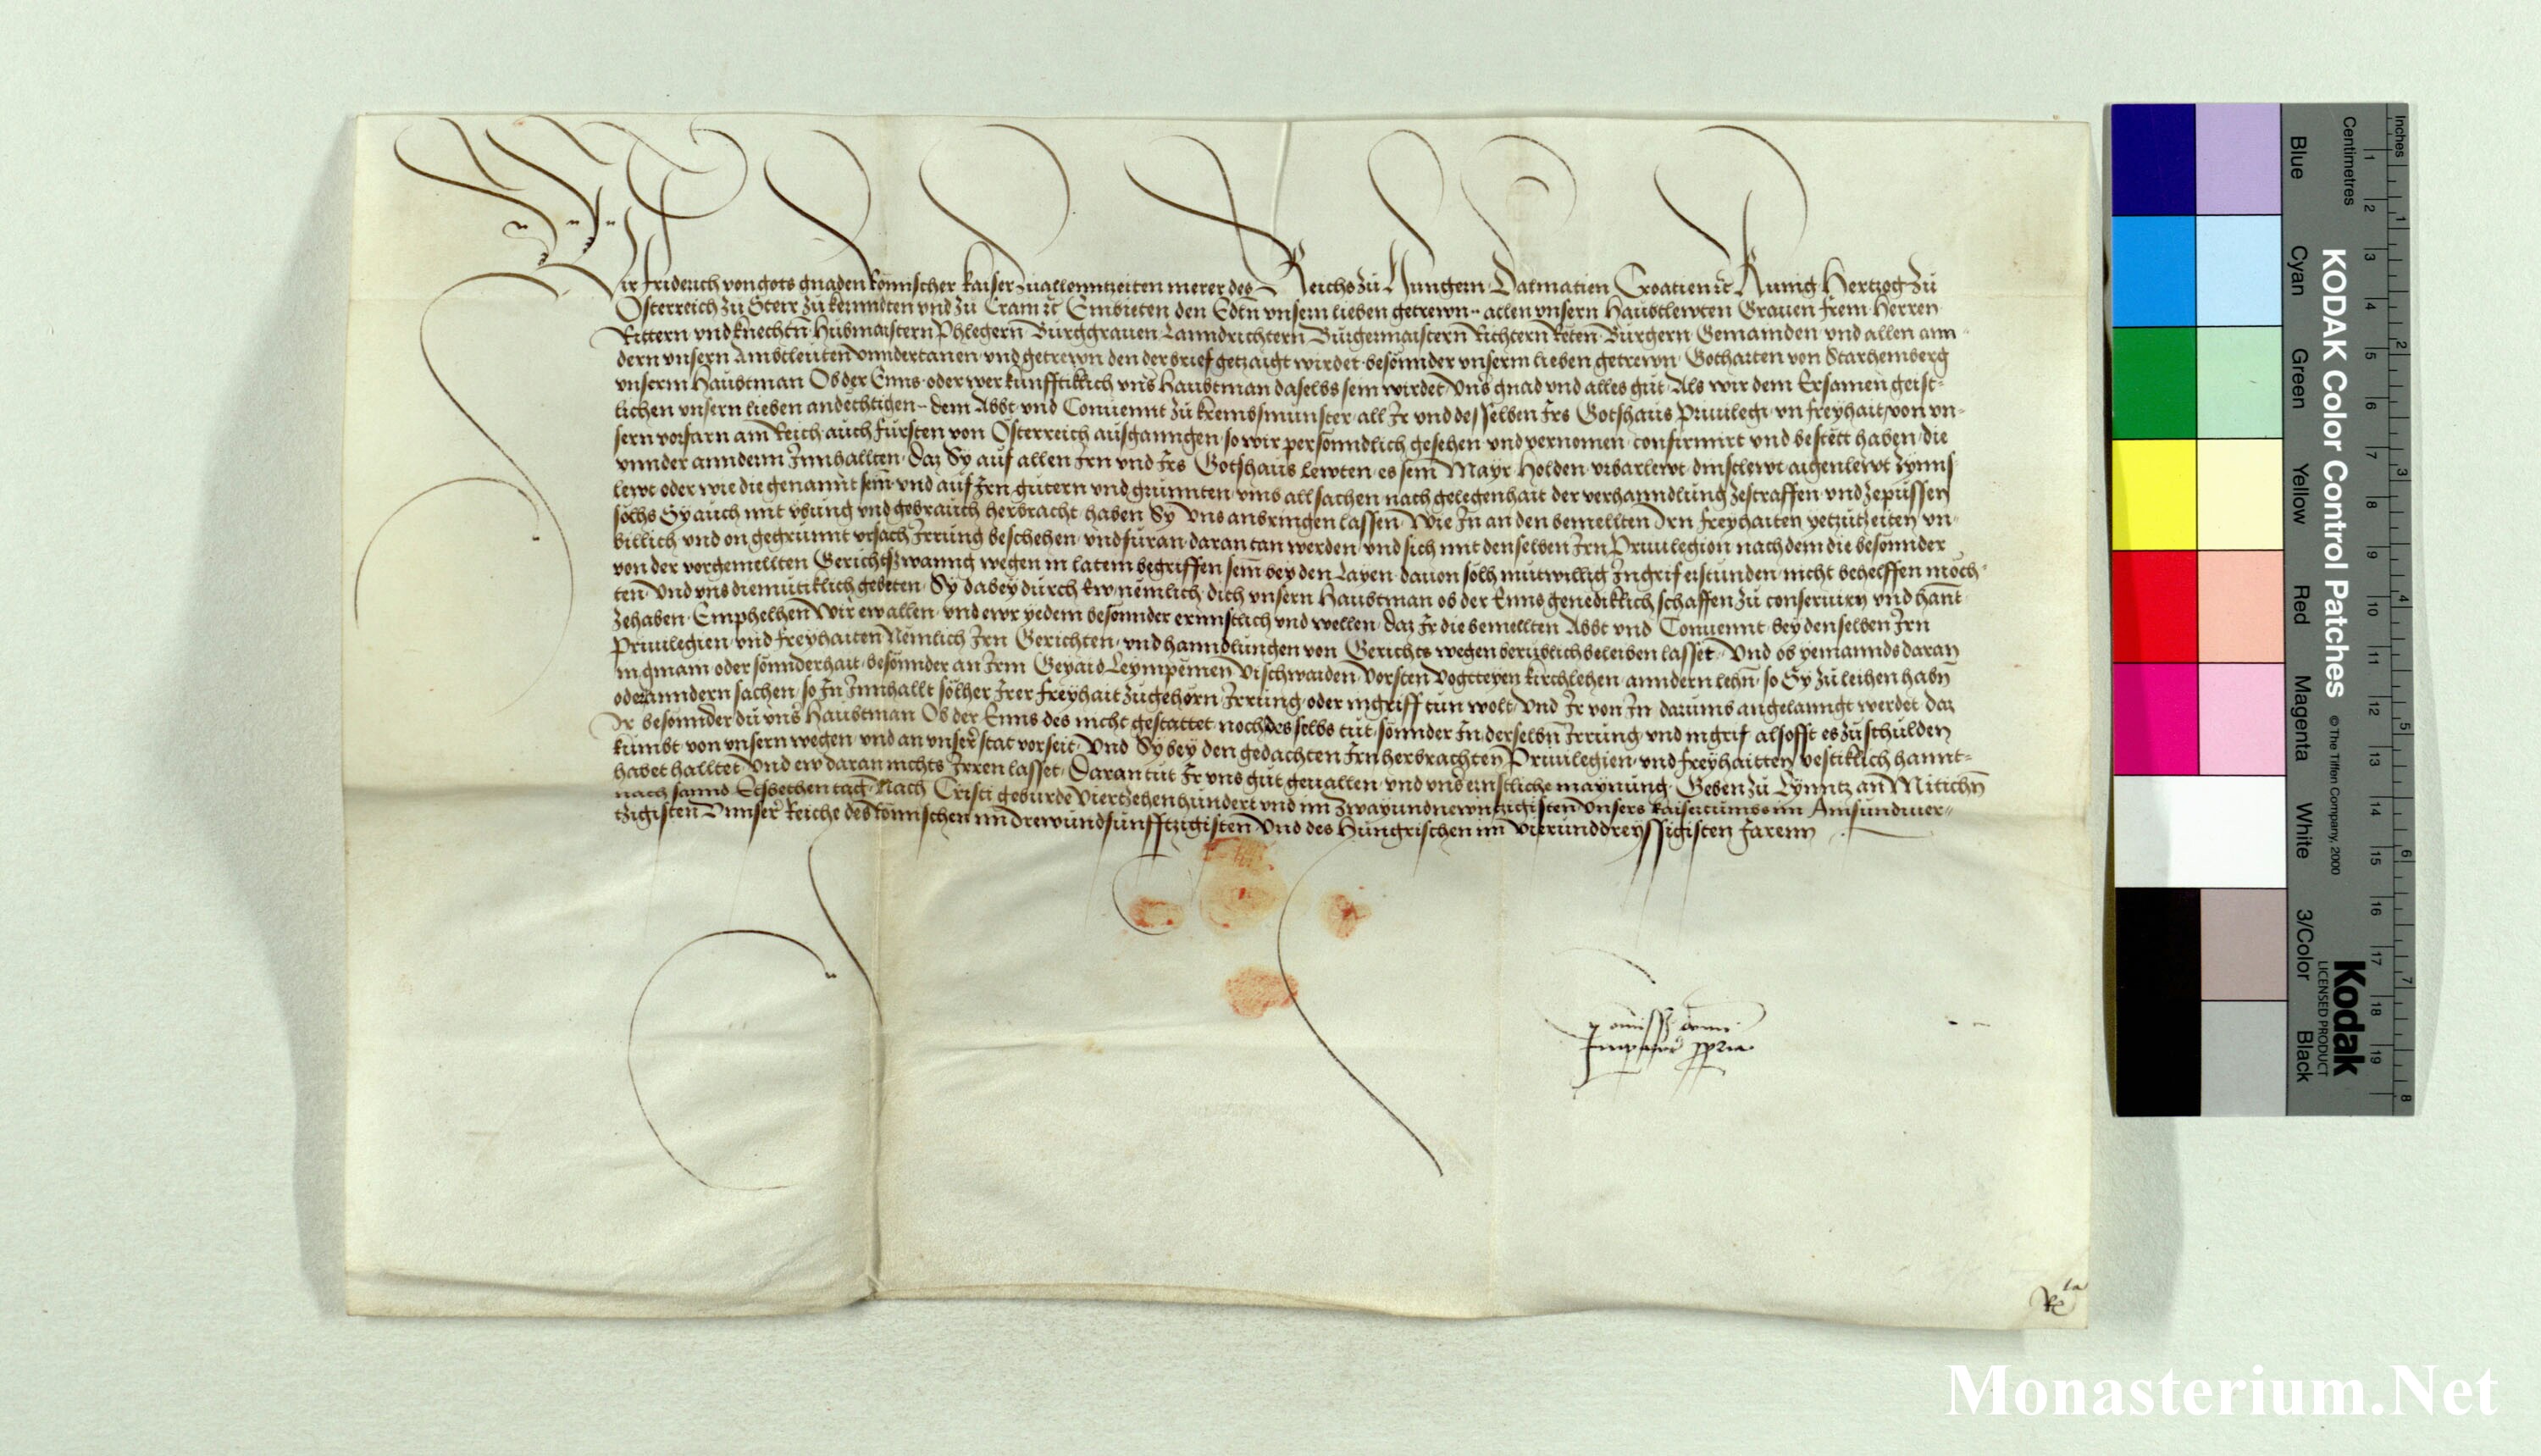 Wir Friderich von gots gnaden Römischer Kaiser zuallenntzeiten merer des Reichs zu Hungern Dalmatien Croatien ꝛc Kunig Hertzog zu
Österreich zu Steir zu Kernndten vnd zu Crain ꝛc Embieten den Edeln vnsern lieben getrewn allen vnsern Haubtlewten Grauen frein Herren
Rittern vnd knechtn Hubmaistern Phlegern Burggrauen Lanndrichtern Burgermaistern Richtern Reten Burgern Gemainden vnd allen ann-
dern vnsern Ambtleuten vnndertanen vnd getrewn den der brief getzaigt wirdet besonnder vnserm lieben getrewn Gotharten von Starhemberg
vnserm Haubtman Ob der Enns oder wer kunfftiklich vnser Haubtman daselbs sein wirdet vnser gnad vnd alles gut Als wir dem Ersamen geist-
lichen vnsern lieben andechtigen dem Abbt vnd Conuennt zu Kremsmunster all Ir vnd desselben Irs Gotshaus Priuilegi vn freyhait von vn-
sern vorfarn am Reich auch fursten von Österreich ausganngen so wir personndlich gesehen vnd vernomen confirmirt vnd bestett haben die
vnnder annderm Innhallten daz Sy auf allen Irn vnd Irs Gotshaus Lewten es sein Mayr Holden vrbarlewt dinstlewt aigenlewt Zynns
lewt oder wie die genannt sein vnd auf Irn gutern vnd grunnten vmb all sachen nach gelegenhait der verhanndlung zestraffen vnd zepussen
solhs Sy auch mit vbung vnd gebrauch herbracht haben Sy vns anbringen lassen Wie In an den bemellten Irn freyhaiten yetzutzeiten vn-
billich vnd on gegrunnt vrsach Irrung beschehen vnd furan daran tan werden vnd sich mit denselben Irn Priuilegion nachdem die besonnder
von der vorgemellten Gerichtzwanng wegen in latein begriffen sein bey den Layen dauon solh mutwillig Ingrif erstunden nicht behelffen möch-
ten Vnd vns diemutiklich gebeten Sy dabey durch Ew nemlich dich vnsern Haubtman ob der Enns genediklich schaffen zu conseruirn vnd hannt
zehaben Emphelhen Wir ew allen vnd ewr yedem besonnder ernnstlich vnd wellen daz Ir die bemellten Abbt vnd Conuennt bey denselben Irn
Priuilegien vnd freyhaiten Nemlich Irn Gerichten vnd hanndlungen von Gerichts wegen berublich beleiben lasset Vnd ob yemannds daran
in gmain oder sonnderhait besonnder an Irm Geyaid Vischwaiden Vorsten Vogtteyen kirchlehen anndern lehn so Sy zu leihen habn
oder anndern sachen so In Innhallt solher Irer freyhait zugehörn Irrung oder ingriff tun wolt Vnd Ir von In darumb angelanngt werdet daz
Ir besonnder du vnser Haubtman Ob der Enns des nicht gestattet noch des selbs tut sonnder In derselbn Irrung vnd ingrif alsofft es zuschulden
kumbt von vnsern wegen vnd an vnser stat vorseit Vnd Sy bey den gedachten Irn herbrachten Priuilegien vnd freyhaitten vestiklich hannt-
habet halltet Vnd ew daran nichts Irren lasset Daran tut Ir vns gut geuallen vnd vnser ernstliche maynung Geben zu Lynntz an Mitichn
nach sannd Elsbethen tag Nach Cristi geburde Viertzehenhundert vnd im zwayundnewntzigisten Vnsers Kaisertumbs im Ainsundvier-
tzigisten Vnnser Reiche des Römischen im drewundfunfftzigisten Vnd des Hungrischen im Vierunddreyssigisten Jarenn
Commissio domini
Imperatoris propria
Rta
KODAK Color Control Patches
© The Tiffen Company, 2000
Kodak
LICENSED PRODUCT
Inches
Centimetres
Blue
Cyan
Green
Yellow
Red
Magenta
White
3/Color
Black
1 2 3 4 5 6 7 8 9 10 11 12 13 14 15 16 17 18 19
1 2 3 4 5 6 7 8
Monasterium.Net